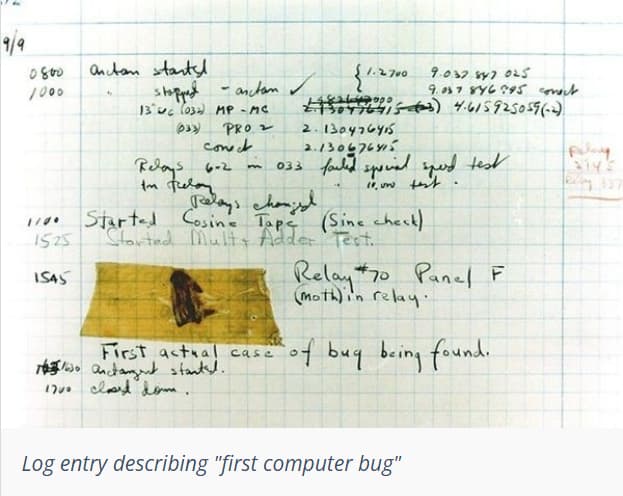 9/9
0800 Antan started { 1.2700 9.037 847 025
1000 " stopped - antan ✓ 9.037 846 995 correct
13"uc (032) MP - MC 2.130476415 (-3) 4.615925059(-2)
(033) PRO 2 2.130476415
correct 2.130676415
Relays 6-2 in 033 failed special speed test
in Relay " 10,000 test.
Relay 3145
Relays changed
1100 Started Cosine Tape (Sine check)
1525 Started Mult+ Adder Test.
1545 Relay #70 Panel F
(moth) in relay.
First actual case of bug being found.
1630 antangent started.
1700 closed down.
Log entry describing "first computer bug"